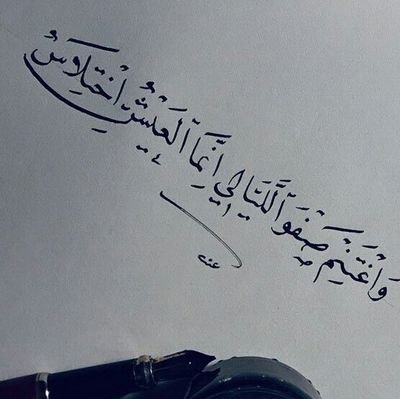 وَاغْتَنِمْ صَفْوَ اللَّيَالِي إِنَّمَا الْعَيْشُ اخْتِلَاسُ